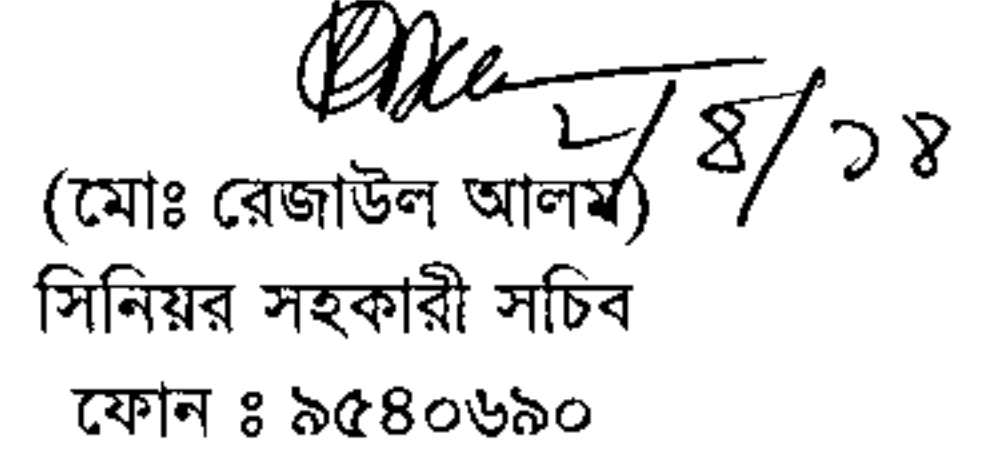 ৮/৪/১৪
(মোঃ রেজাউল আলম)
সিনিয়র সহকারী সচিব
ফোন ঃ ৯৫৪০৬৯০